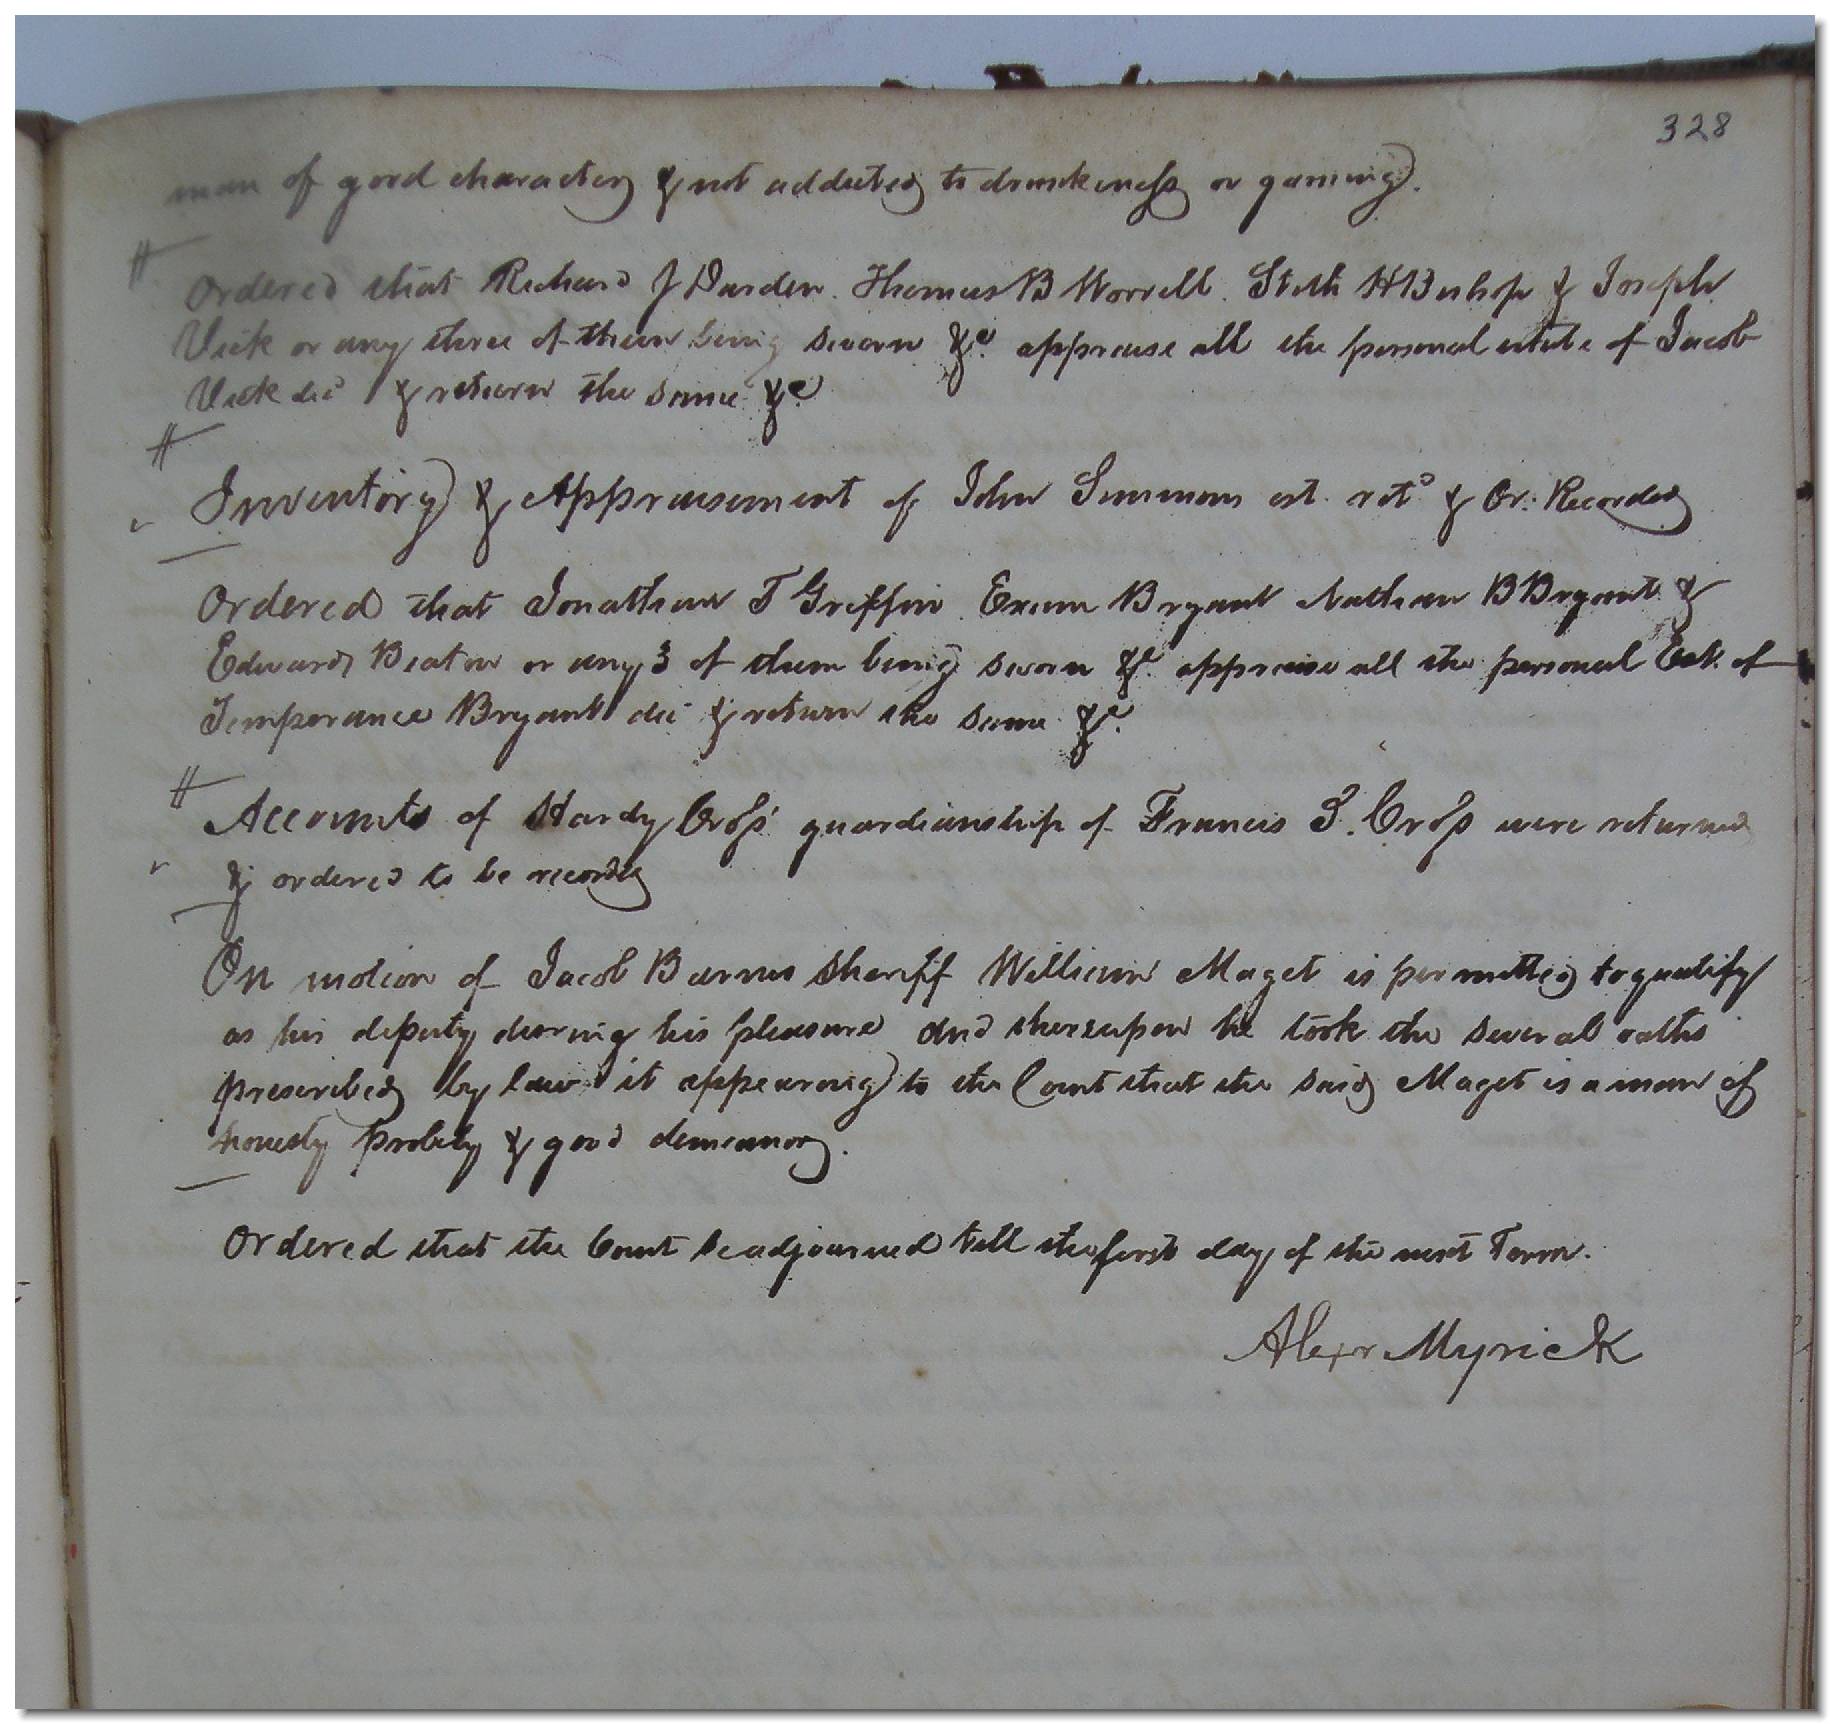 328
man of good character & not addicted to drunkeness or gaming.
Ordered that Richard J Darden. Thomas B Worrell. Stith H Bishop & Joseph
Vick or any three of them being sworn &c. appraise all the personal estate of Jacob
Vick dec & return the same &c
Inventory & Appraisement of John Simmons est. retd & Or. Recorded
Ordered that Jonathan T Griffin. Exum Bryant Nathan B Bryant &
Edward Beaton or any 3 of them being sworn &c. appraise all the personal Est. of
Temperance Bryant dec & return the same &c.
Accounts of Hardy Cross guardianship of Francis S. Cross were returned
& ordered to be recorded
On motion of Jacob Barnes Sheriff William Maget is permitted to qualify
as his deputy during his pleasure and thereupon he took the several oaths
prescribed by law it appearing to the Court that the said Maget is a man of
honesty probity & good demeanor.
Ordered that the Court be adjourned till the first day of the next Term.
Alexr Myrick